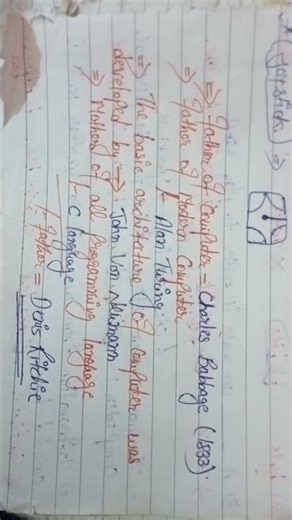 (Joystick) ⇒
⇒ Father of Computer – Charles Babbage (1833)
⇒ Father of Modern Computer
↳ Alan Turing
⇒ The basic architecture of computer was
developed by ⇒ John Von Neumann
⇒ Mother of all Programming language
↳ C language
↳ father = Denis Ritchie